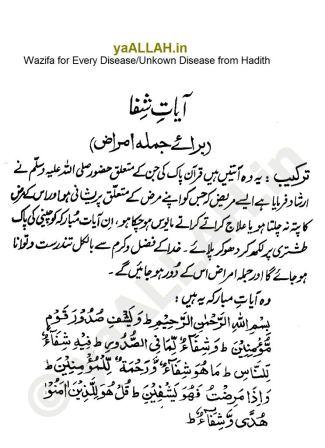 yaALLAH.in
Wazifa for Every Disease/Unkown Disease from Hadith
آیاتِ شفا
(برائے جملہ امراض)
ترکیب: یہ وہ آیتیں ہیں قرآن پاک کی جن کے متعلق حضور صلی اللہ علیہ وسلم نے
ارشاد فرمایا ہے ایسے مریض کو جس کو اپنے مرض کے متعلق پریشانی ہو اور اس کے مرض
کا پتہ نہ چلتا ہو یا علاج کراتے کراتے مایوس ہو چکا ہو، ان آیات مبارکہ کو چینی کی پاک
طشتری پر لکھ کر دھو کر پلائے۔ خدا کے فضل و کرم سے بالکل تندرست و توانا
ہو جائے گا اور جملہ امراض اس کے دُور ہو جائیں گے۔
وہ آیاتِ مبارکہ یہ ہیں:
بِسْمِ اللهِ الرَّحْمٰنِ الرَّحِيْمِ ط وَيَشْفِ صُدُوْرَ قَوْمٍ
مُّؤْمِنِيْنَ ط وَشِفَاءٌ لِّمَا فِي الصُّدُوْرِ ط فِيْهِ شِفَاءٌ
لِّلنَّاسِ ط مَا هُوَ شِفَاءٌ وَّرَحْمَةٌ لِّلْمُؤْمِنِيْنَ ط
وَاِذَا مَرِضْتُ فَهُوَ يَشْفِيْنِ ط قُلْ هُوَ لِلَّذِيْنَ اٰمَنُوْا
هُدًى وَّشِفَاءٌ ط
© yaALLAH.in